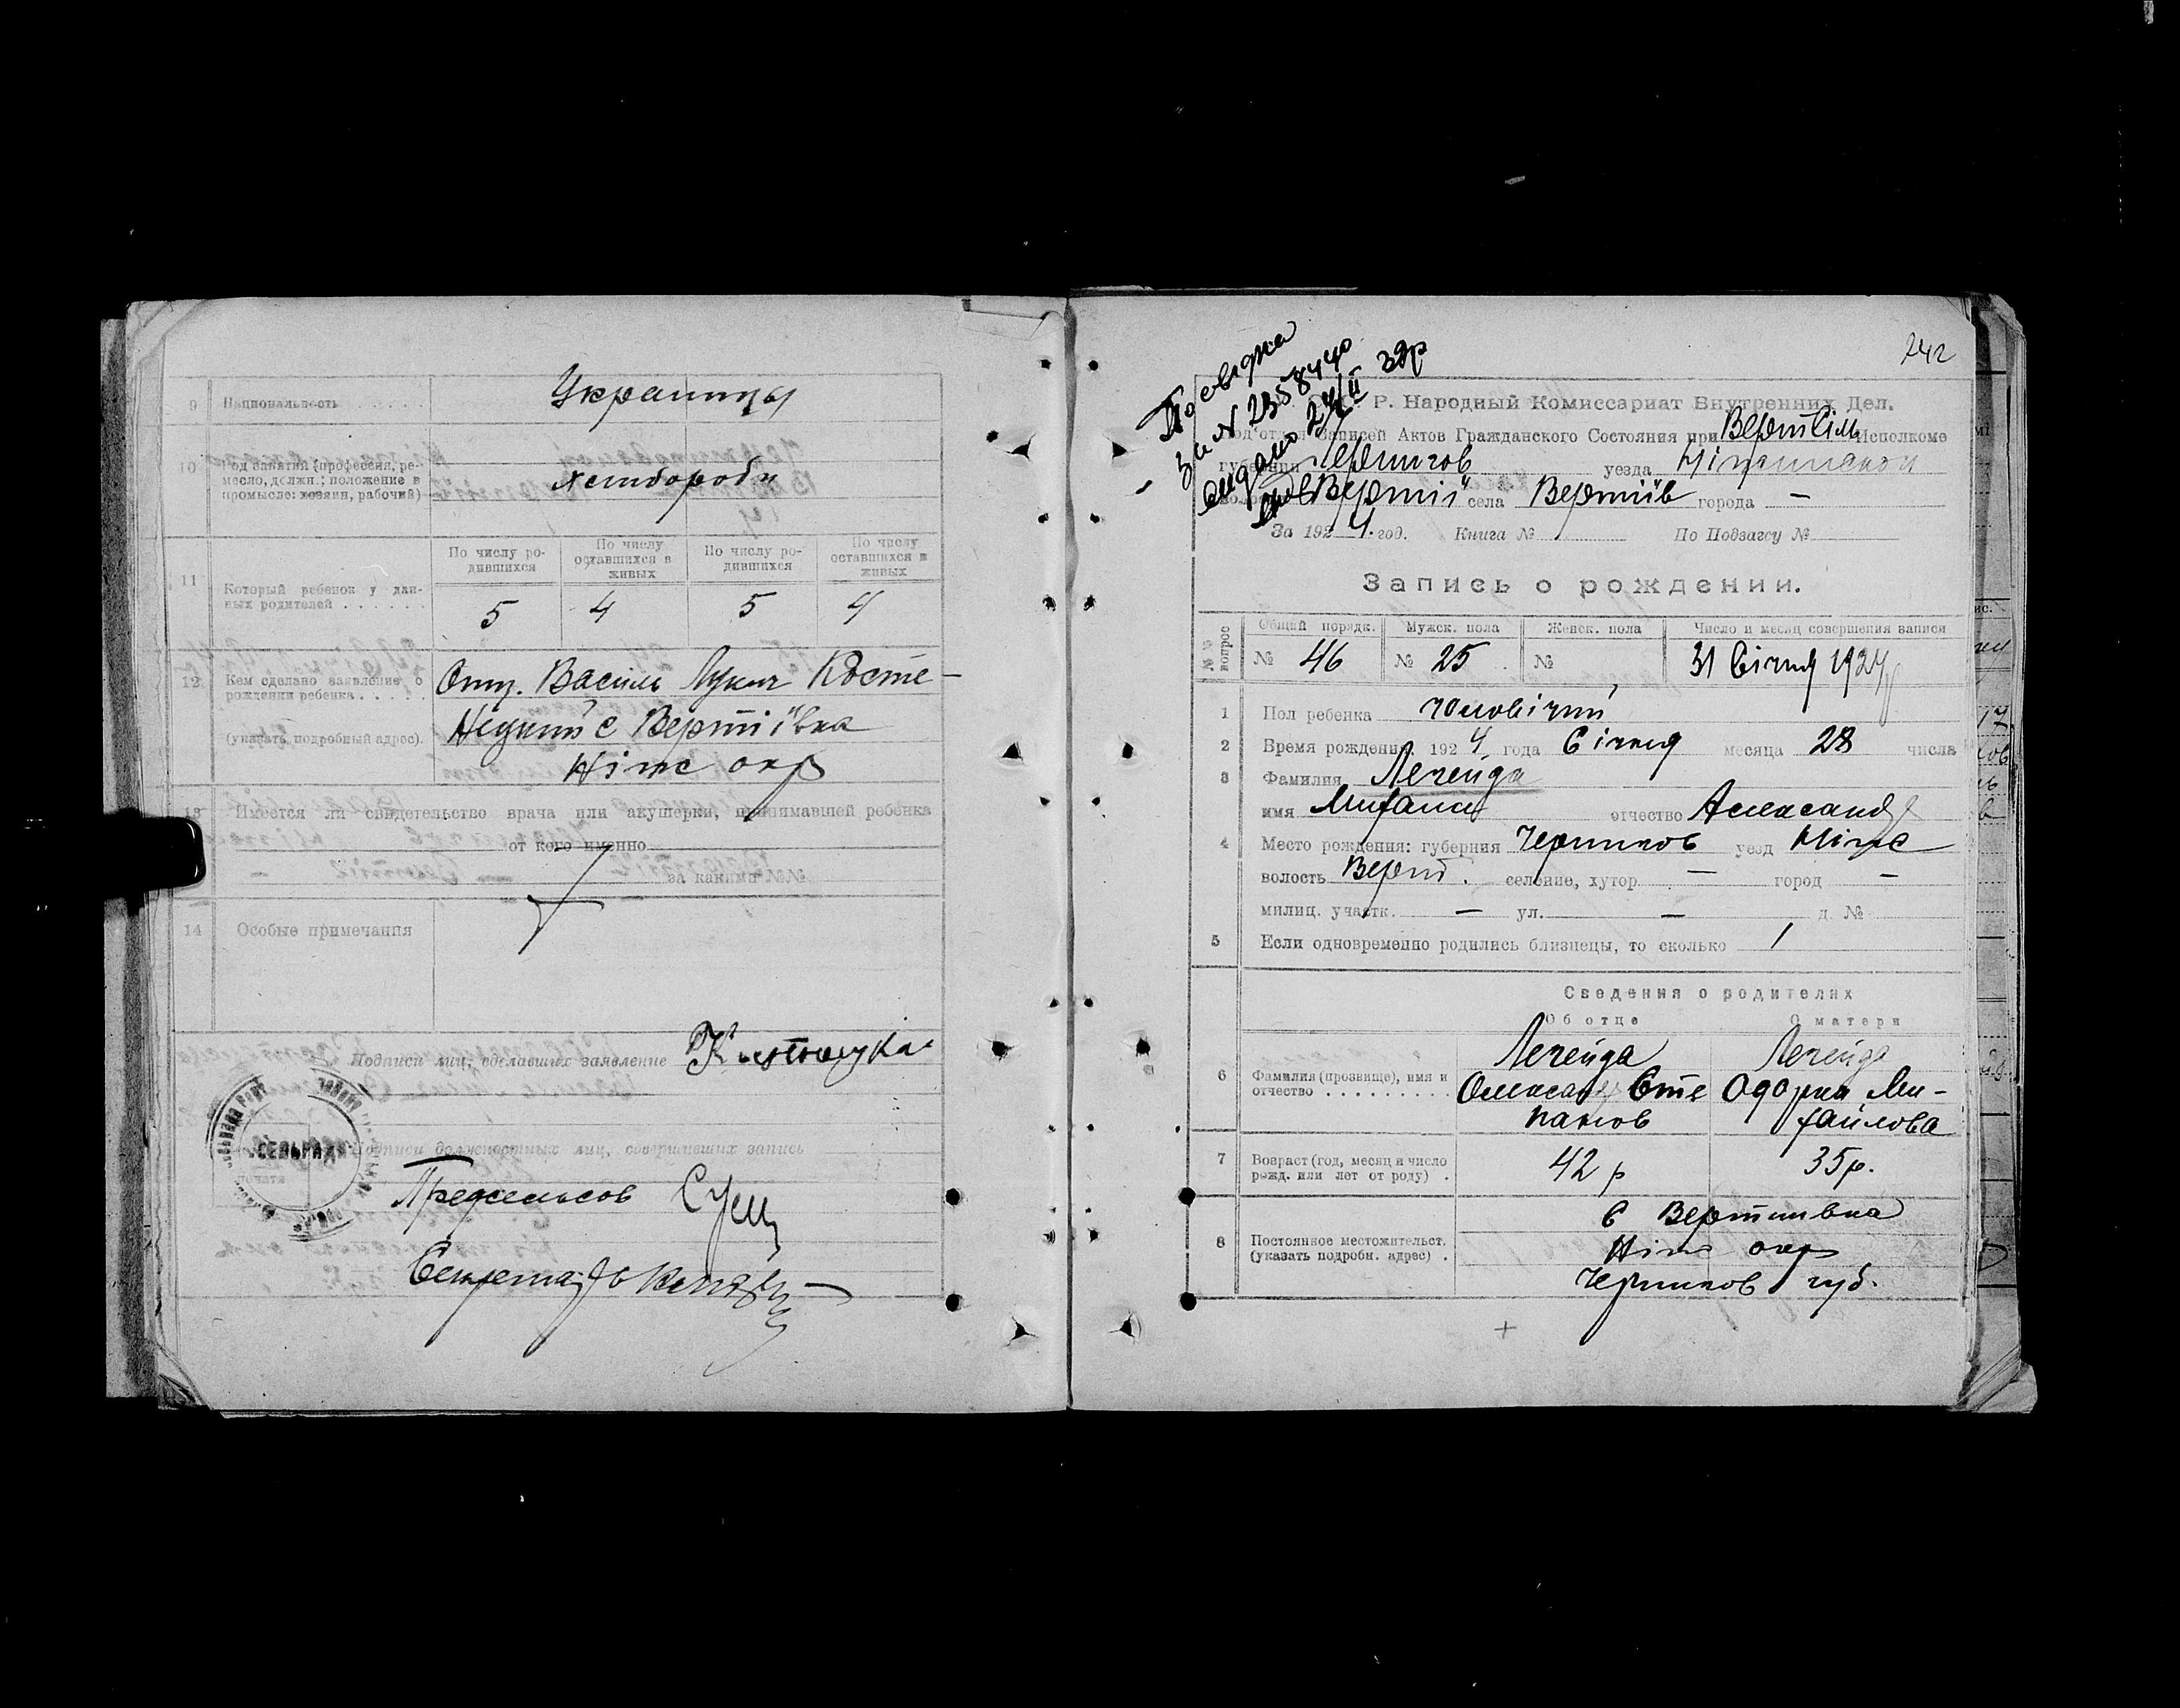 9 Национальность Украинцы
10 Род занятий (профессия, ремесло, должн.; положение в промысле: хозяин, рабочий) хлибороби
11 Который ребенок у данных родителей
По числу родившихся По числу оставшихся в живых По числу родившихся По числу оставшихся в живых
5 4 5 4
12 Кем сделано заявление о рождении ребенка
Василь Лукич Косте-
(указать подробный адрес). с Вертіївка
Ніже окр
13 Имеется ли свидетельство врача или акушерки, принимавшей ребенка
от кого именно
за каким №№
14 Особые примечания
Подписи лиц, сделавших заявление
СЕЛЬРАДА
Подписи должностных лиц, совершивших запись
Секретарь
242
Посвідка
за № 235844
видано
39р
Р. Народный Комиссариат Внутренних Дел.
Подотдел Записей Актов Гражданского Состояния при Исполкоме
губернии Чернигов уезда
села Вертіїв города —
За 1924 год. Книга № По Подзагсу №
Запись о рождении.
№№ вопрос
Общий порядк. Мужск. пола Женск. пола Число и месяц совершения записи
№ 46 № 25 № 31 Січня 1924
1 Пол ребенка чоловічий
2 Время рождения 1924 года Січня месяца 28 числа
3 Фамилия Легейда
имя Михаил отчество Александ
4 Место рождения: губерния Чернигов уезд Ніже
волость Верт. селение, хутор — город —
милиц. участк. — ул. — д. №
5 Если одновременно родились близнецы, то сколько 1
Сведения о родителях
Об отце О матери
6 Фамилия (прозвище), имя и отчество
Легейда Легейда
Олександ Сте Одарка Ми-
панов хайлова
7 Возраст (год, месяц и число рожд. или лет от роду) 42 р 35 р.
8 Постоянное местожительст. (указать подробн. адрес)
с Вертиивка
Ніже окр
Чернигов губ.